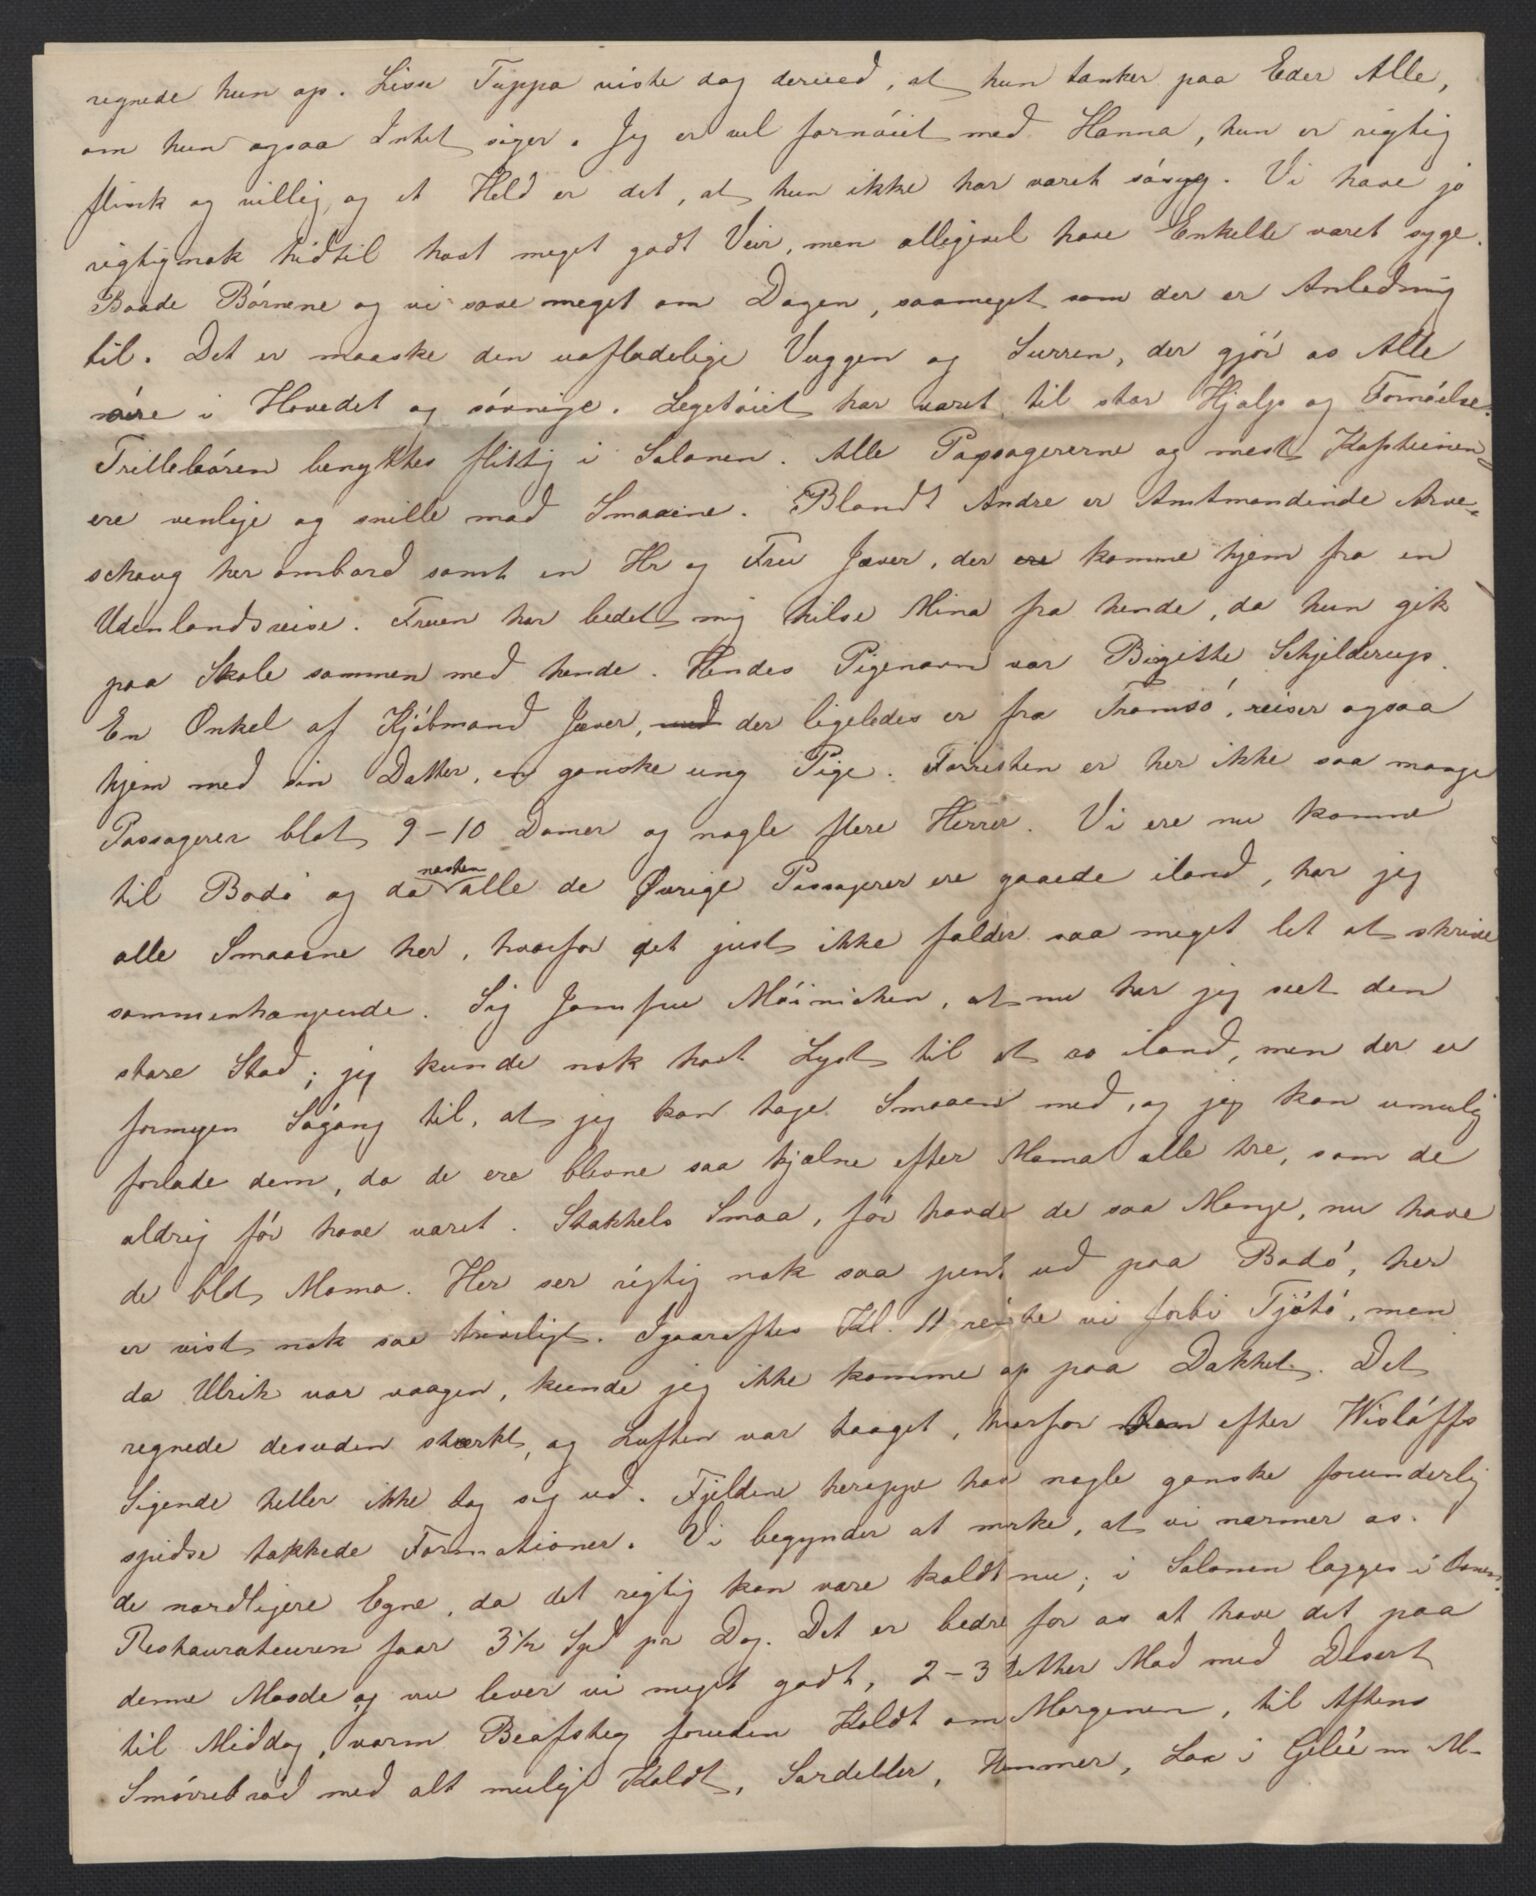 regnede hun op. Lisse Tuppa viste dog derved, at hun tænker paa Eder Alle,
om hun ogsaa Intet siger. Jeg er vel fornöiet med Hanna, hun er rigtig
flink og villig, og et Held er det, at hun ikke har været sösyg. Vi have jo
rigtignok hidtil havt meget godt Veir, men alligevel have Enkelte været syge.
Baade Börnene og vi sove meget om Dagen, saameget som der er Anledning
til. Det er maaske den uafladelige Vuggen og Surren, der gjör os Alle
öre i Hovedet og sövnige. Legetöiet har været til stor Hjælp og Fornöielse.
Trillebören benyttes flittig i Salonen. Alle Passagererne og mest Kapteinen
ere venlige og snille mod Smaaene. Blandt Andre er Amtmandinde Arve-
schoug her ombord samt en Hr og Fru Jæver, der ere komme hjem fra en
Udenlandsreise. Fruen har bedet mig hilse Mina fra hende, da hun gik
paa Skole sammen med hende. Hendes Pigenavn var Birgitte Schjelderup.
En Onkel af Kjöbmand Jæver, med der ligeledes er fra Tromsö, reiser ogsaa
hjem med sin Datter, en ganske ung Pige. Forresten er her ikke saa mange
Passagerer blot 9-10 Damer og nogle flere Herrer. Vi ere nu komne
til Bodö og da næsten alle de Øvrige Passagerer ere gaaede iland, har jeg
alle Smaaene her, hvorfor det just ikke falder saa meget let at skrive
sammenhængende. Sig Jomfru Möinichen, at nu har jeg seet den
store Stad; jeg kunde nok havt Lyst til at ro iland, men der er
formegen Sögang til, at jeg kan tage Smaaen med, og jeg kan umulig
forlade dem, da de ere blevne saa kjælne efter Mama alle tre, som de
aldrig för have været. Stakkels Smaa, för havde de saa Mange, nu have
de blot Mama. Her ser rigtig nok saa pent ud paa Bodö, her
er vist nok saa triveligt. Igaaraftes Kl. 11 reiste vi forbi Tjötö, men
da Ulrik var vaagen, kunde jeg ikke komme op paa Dækket. Det
regnede desuden stærkt, og Luften var taaget, hvorfor Den efter Wislöffs
Sigende heller ikke tog sig ud. Fjeldene heroppe har nogle ganske forunderlig
spidse takkede Formationer. Vi begynder at mærke, at vi nærmer os
de nordligere Egne, da det rigtig kan være koldt nu; i Salonen lægges i Ovnen.
Restaurateuren faar 3½ Spd pr Dag. Det er bedre for os at have det paa
denne Maade og nu lever vi meget godt, 2-3 Retter Mad med Desert
til Middag, varm Beafsteg foruden Koldt om Morgenen, til Aftens
Smörrebröd med alt muligt Koldt, Sardeller, Hummer, Lax i Gelée m M-